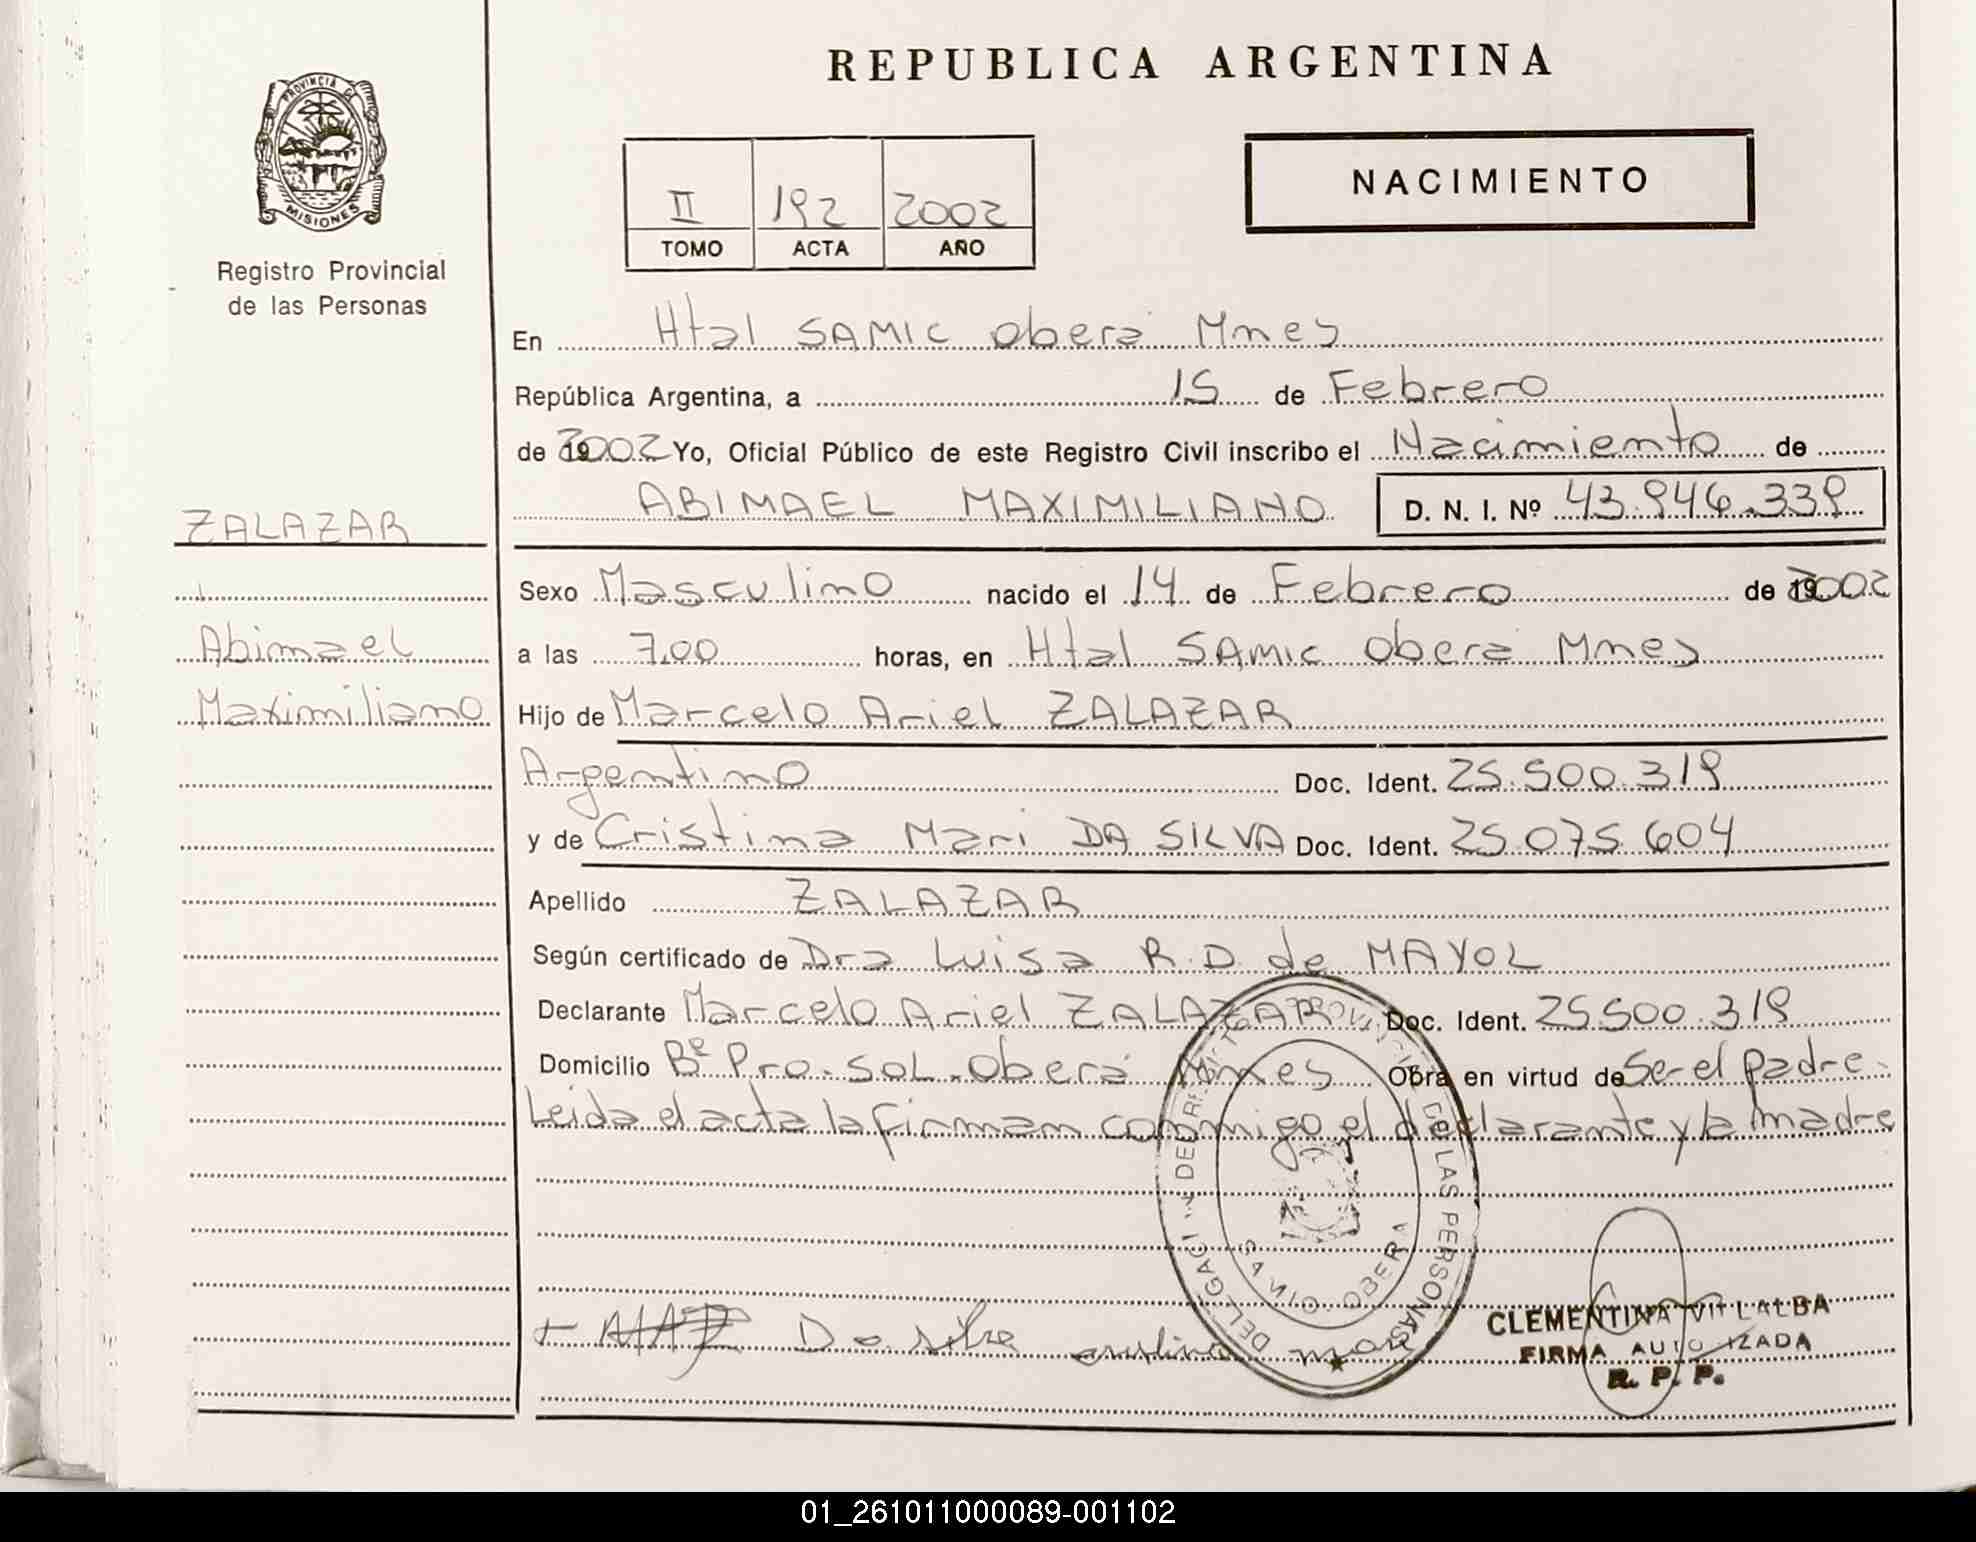 REPUBLICA ARGENTINA
PROVINCIA DE
MISIONES
Registro Provincial
de las Personas
II 192 2002
TOMO ACTA AÑO
NACIMIENTO
En Htal SAMIC Oberá Mnes
República Argentina, a 15 de Febrero
de 2002 Yo, Oficial Público de este Registro Civil inscribo el Nacimiento de
ABIMAEL MAXIMILIANO D. N. I. Nº 43.946.339
ZALAZAR
Sexo Masculino nacido el 14 de Febrero de 2002
Abimael
a las 7,00 horas, en Htal SAMIC Oberá Mnes
Maximiliano
Hijo de Marcelo Ariel ZALAZAR
Argentino Doc. Ident. 25.500.319
y de Cristina Mari DA SILVA Doc. Ident. 25.075.604
Apellido ZALAZAR
Según certificado de Dra Luisa R.D. de MAYOL
Declarante Marcelo Ariel ZALAZAR Doc. Ident. 25.500.319
Domicilio Bº Pro.Sol.Oberá Mnes Obra en virtud de Ser el padre.
Leida el acta la firman conmigo el declarante y la madre
DE LAS PERSONAS
OBERA
Da silva cristina mari
CLEMENTINA VILLALBA
FIRMA AUTORIZADA
R. P. P.
01_261011000089-001102